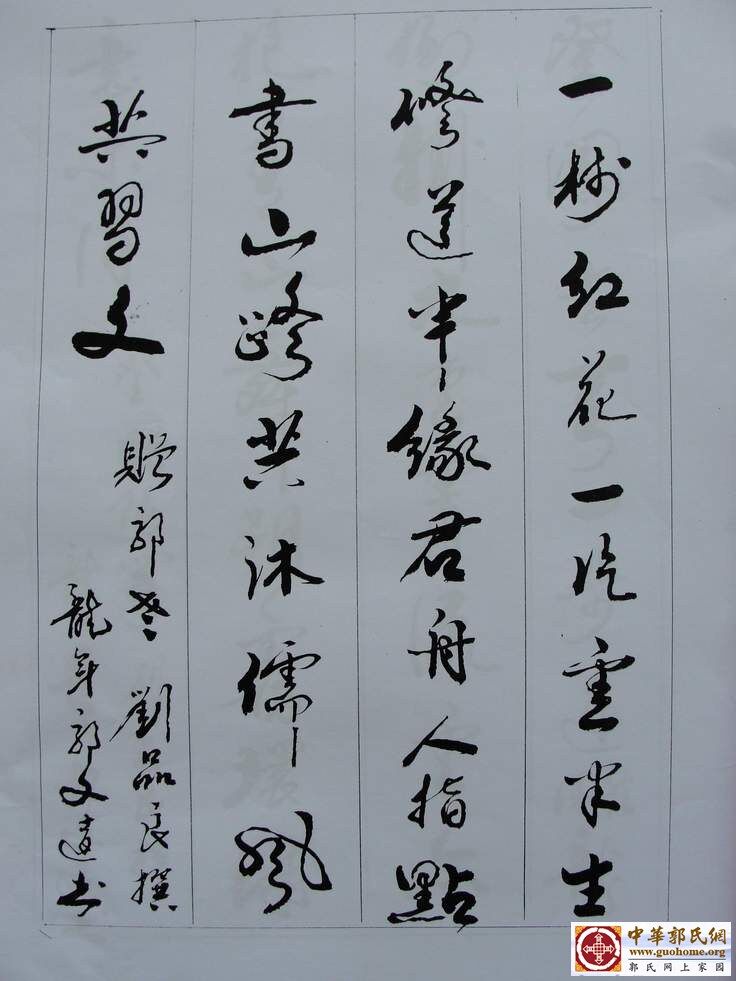 一树红花一片雲半生
修道半緣君舟人指點
書山路共沐儒風
共習文
赠郭老 劉品良撰
龍年郭文书
中華郭氏網
www.guohome.org
郭氏网上家园